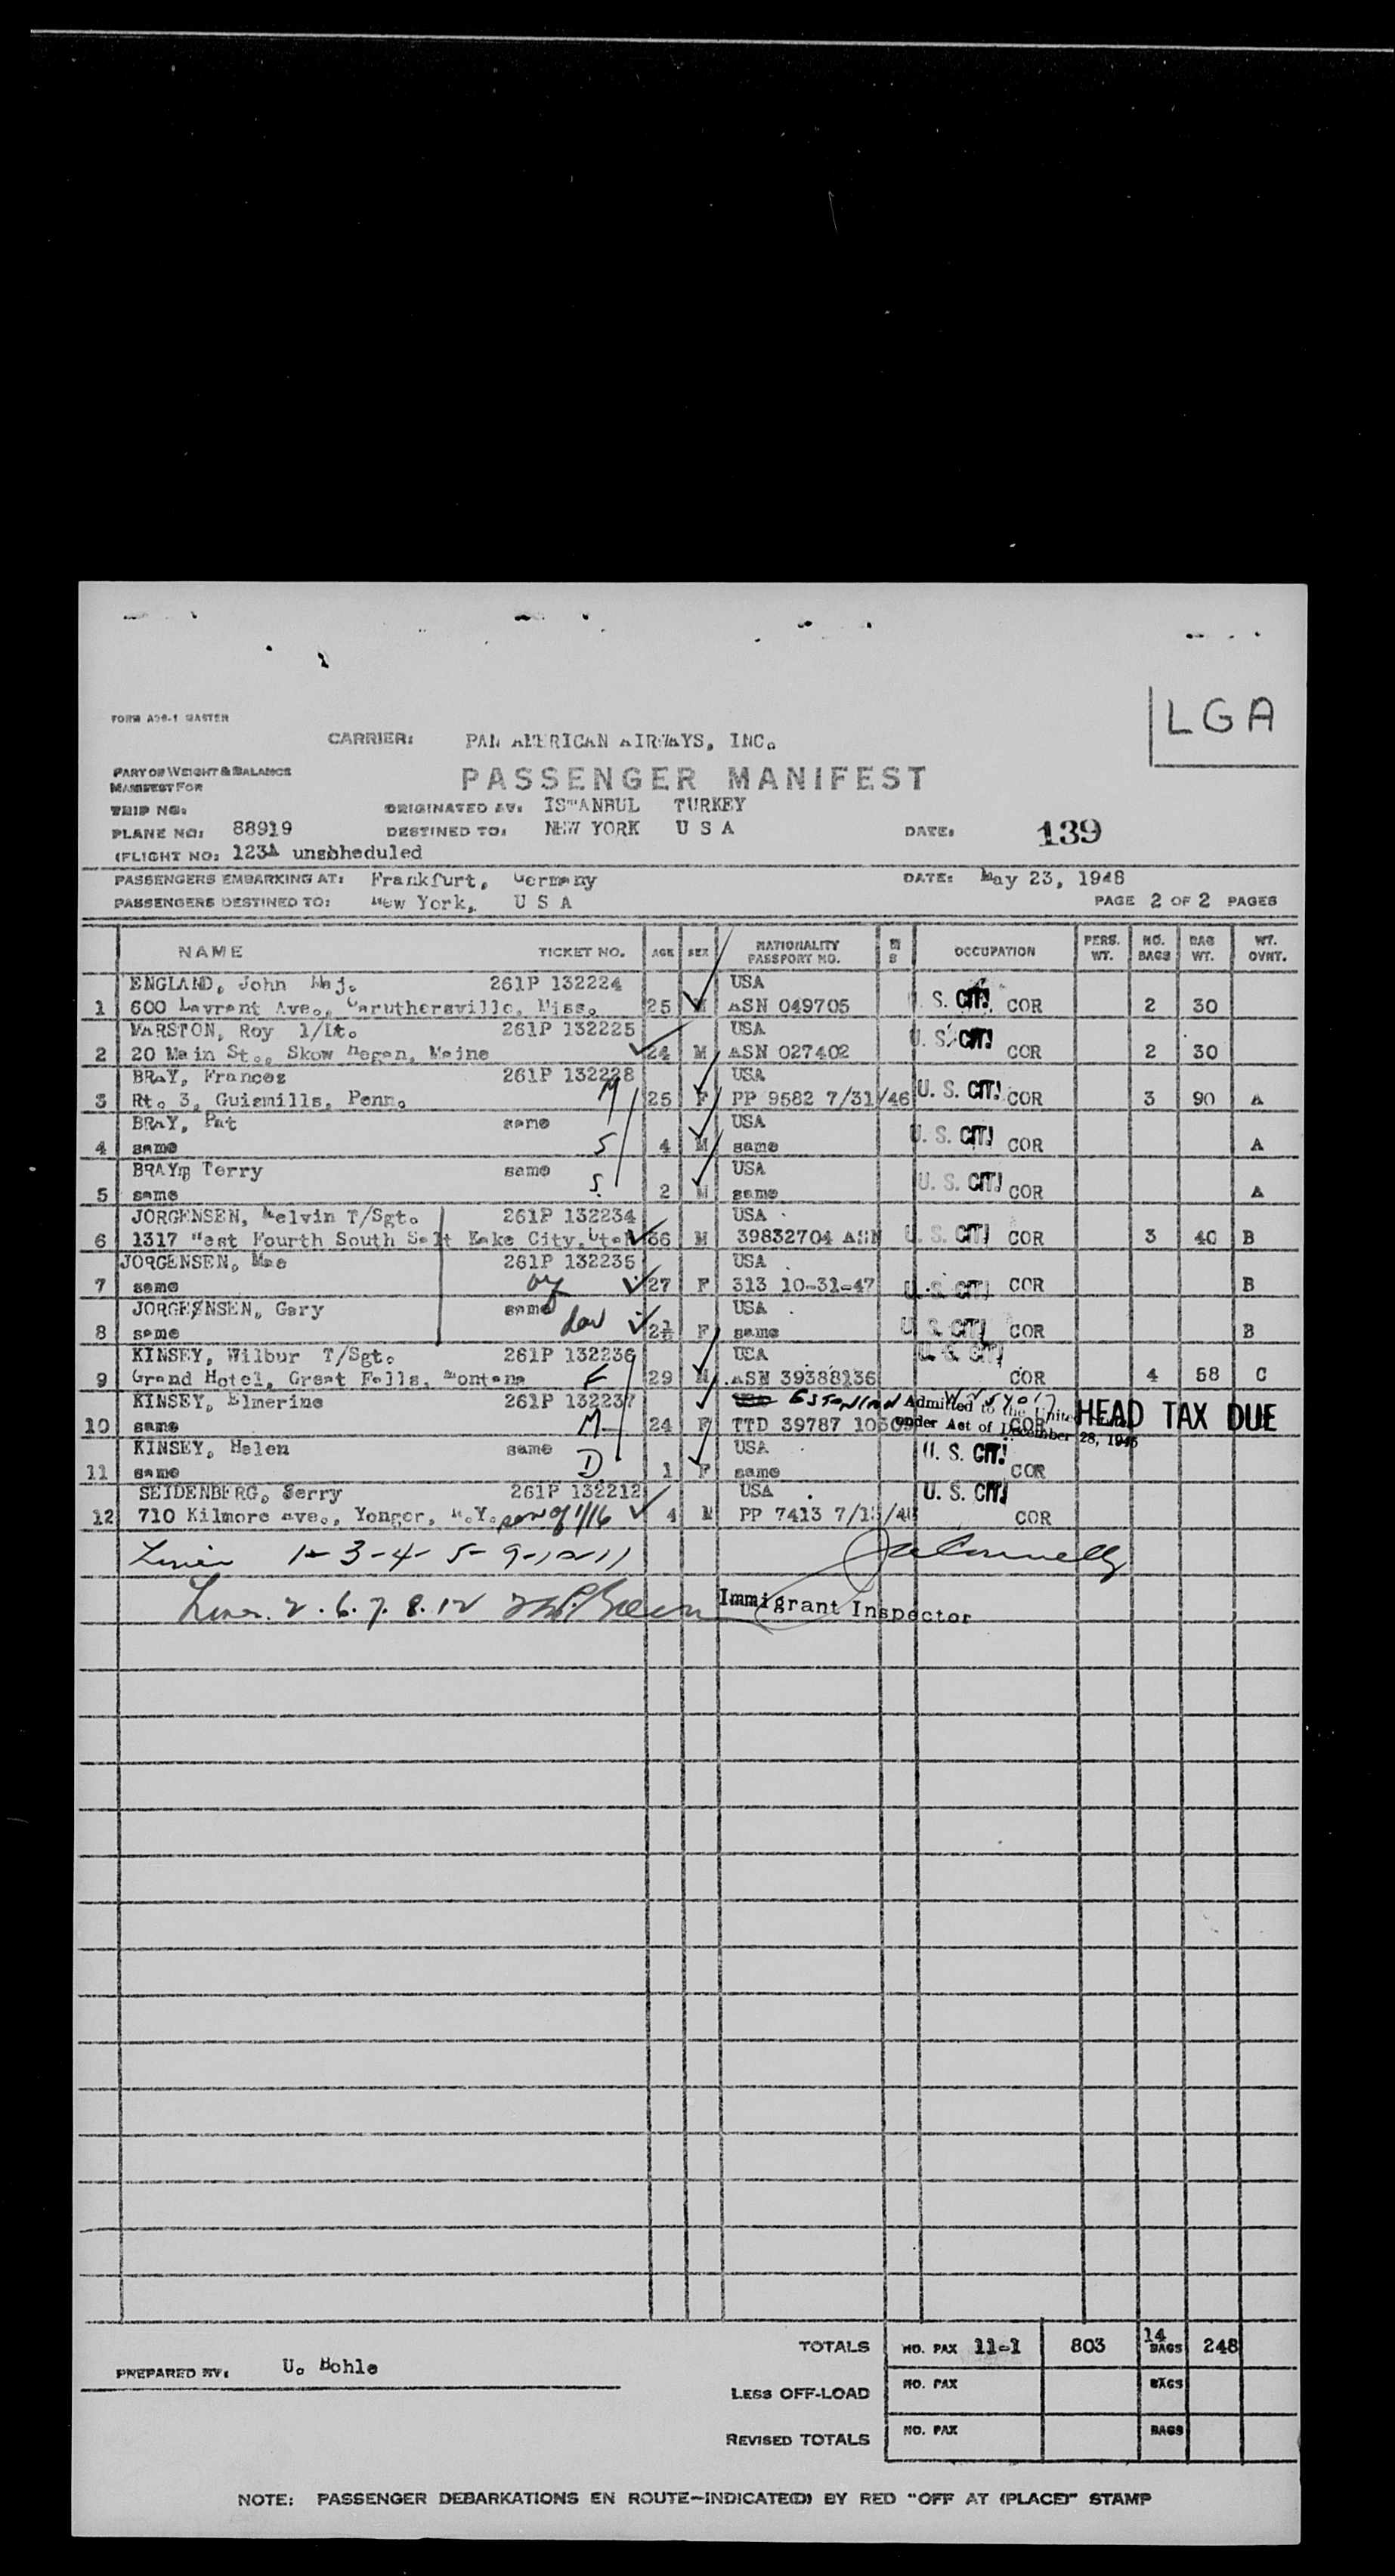 LGA
FORM A20-1 MASTER
CARRIER: PAN AMERICAN AIRWAYS, INC.
PART OF WEIGHT & BALANCE
MANIFEST FOR
PASSENGER MANIFEST
TRIP NO:
ORIGINATED AT: ISTANBUL TURKEY
PLANE NO: 88919
DESTINED TO: NEW YORK U S A
DATE: 139
(FLIGHT NO: 123A unsbheduled
PASSENGERS EMBARKING AT: Frankfurt, Germany
DATE: May 23, 1948
PASSENGERS DESTINED TO: New York, U S A
PAGE 2 OF 2 PAGES
NAME TICKET NO. AGE SEX NATIONALITY PASSPORT NO. M S OCCUPATION PERS. WT. NO. BAGS BAG WT. WT. OVNT.
ENGLAND, John Maj. 261P 132224 USA
1 600 Lavrent Ave., Caruthersville, Miss. 25 M ASN 049705 U. S. CIT! COR 2 30
MARSTON, Roy 1/Lt. 261P 132225 USA
2 20 Main St., Skow Hegan, Maine 24 M ASN 027402 U. S. CIT! COR 2 30
BRAY, Frances 261P 132228 USA
3 Rt. 3, Guismills, Penn. M 25 F PP 9582 7/31/46 U. S. CIT! COR 3 90 A
BRAY, Pat same USA
4 same S 4 M same U. S. CIT! COR A
BRAY, Terry same USA
5 same S. 2 M same U. S. CIT! COR A
JORGENSEN, Melvin T/Sgt. 261P 132234 USA
6 1317 West Fourth South Salt Lake City, Utah 36 M 39832704 ASN U. S. CIT! COR 3 40 B
JORGENSEN, Mae 261P 132235 USA
7 same 27 F 313 10-31-47 U. S. CIT! COR B
JORGENSEN, Gary same USA
8 same 2½ F same U. S. CIT! COR B
KINSEY, Wilbur T/Sgt. 261P 132236 USA U. S. CIT!
9 Grand Hotel, Great Falls, Montana F 29 M ASN 39388136 COR 4 58 C
KINSEY, Elmerine 261P 132237 USA ESTONIAN Admitted to the United States HEAD TAX DUE
10 same M 24 F TTD 39787 under Act of December 28, 1945 COR
KINSEY, Helen same USA U. S. CIT!
11 same D 1 F same COR
SEIDENBERG, Jerry 261P 132212 USA U. S. CIT!
12 710 Kilmore Ave., Yonger, N.Y. son of 1/16 4 M PP 7413 COR
1-3-4-5-9-10-11
2.6.7.8.12
Immigrant Inspector
TOTALS NO. PAX 11-1 803 14 BAGS 248
PREPARED BY: U. Bohle
LESS OFF-LOAD NO. PAX BAGS
REVISED TOTALS NO. PAX BAGS
NOTE: PASSENGER DEBARKATIONS EN ROUTE-INDICATE(D) BY RED "OFF AT (PLACE)" STAMP